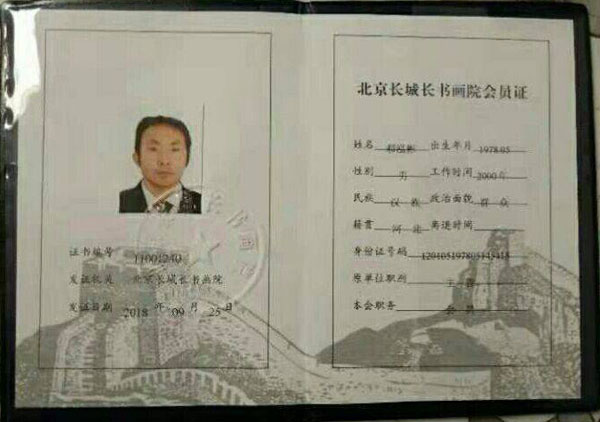 证书编号 11001240
发证机关 北京长城长书画院
发证日期 2018 年 09 月 25 日
北京长城长书画院会员证
姓名 出生年月 1978.05
性别 男 工作时间 2000年
民族 汉族 政治面貌 群众
籍贯 河北 离退时间
身份证号码
原单位职别
本会职务 会员